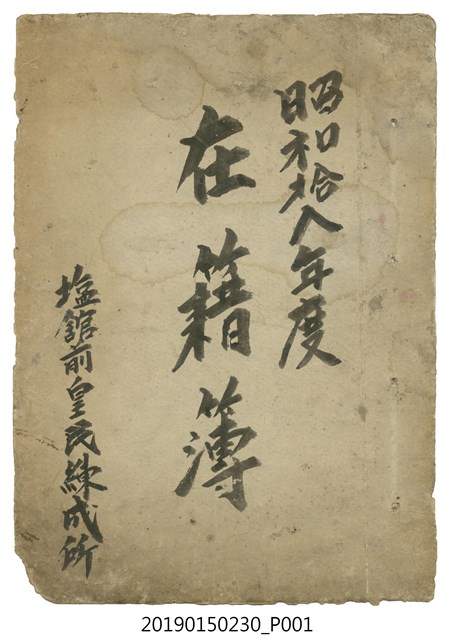 昭和拾八年度
在籍簿
塩館前皇民錬成所
20190150230_P001